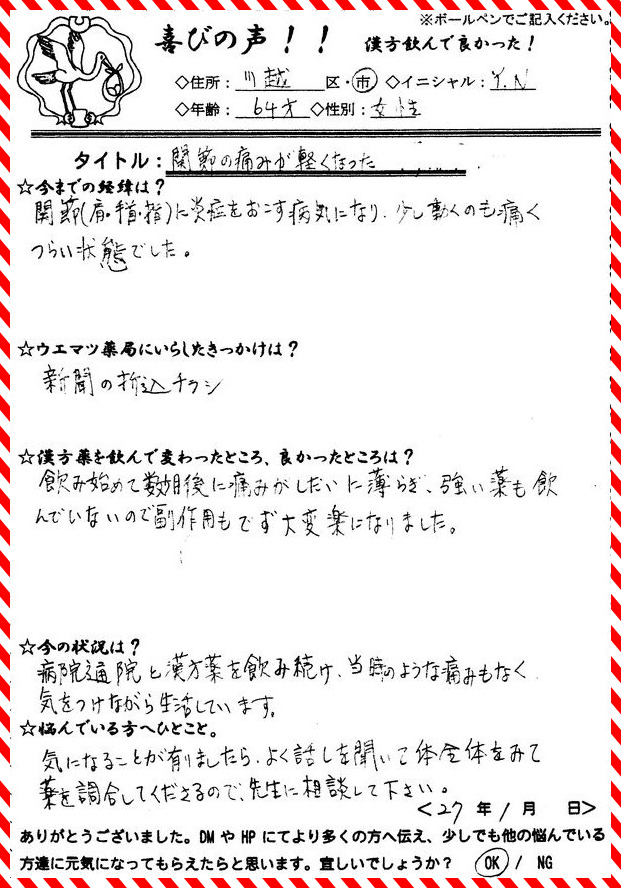 ※ボールペンでご記入ください。
喜びの声!! 漢方飲んで良かった!
◇住所: 川越 区・市 ◇イニシャル: Y.N
◇年齢: 64才 ◇性別: 女性
タイトル: 関節の痛みが軽くなった
☆今までの経緯は?
関節(肩・手首・指)に炎症をおこす病気になり、少し動くのも痛く
つらい状態でした。
☆ウエマツ薬局にいらしたきっかけは?
新聞の折込チラシ
☆漢方薬を飲んで変わったところ、良かったところは?
飲み始めて数ヶ月後に痛みがしだいに薄らぎ、強い薬も飲
んでいないので副作用もでず大変楽になりました。
☆今の状況は?
病院通院と漢方薬を飲み続け、当時のような痛みもなく
気をつけながら生活しています。
☆悩んでいる方へひとこと。
気になることが有りましたら、よく話しを聞いて体全体をみて
薬を調合してくださるので、先生に相談して下さい。
<27年1月 日>
ありがとうございました。DMやHPにてより多くの方へ伝え、少しでも他の悩んでいる
方達に元気になってもらえたらと思います。宜しいでしょうか? OK / NG